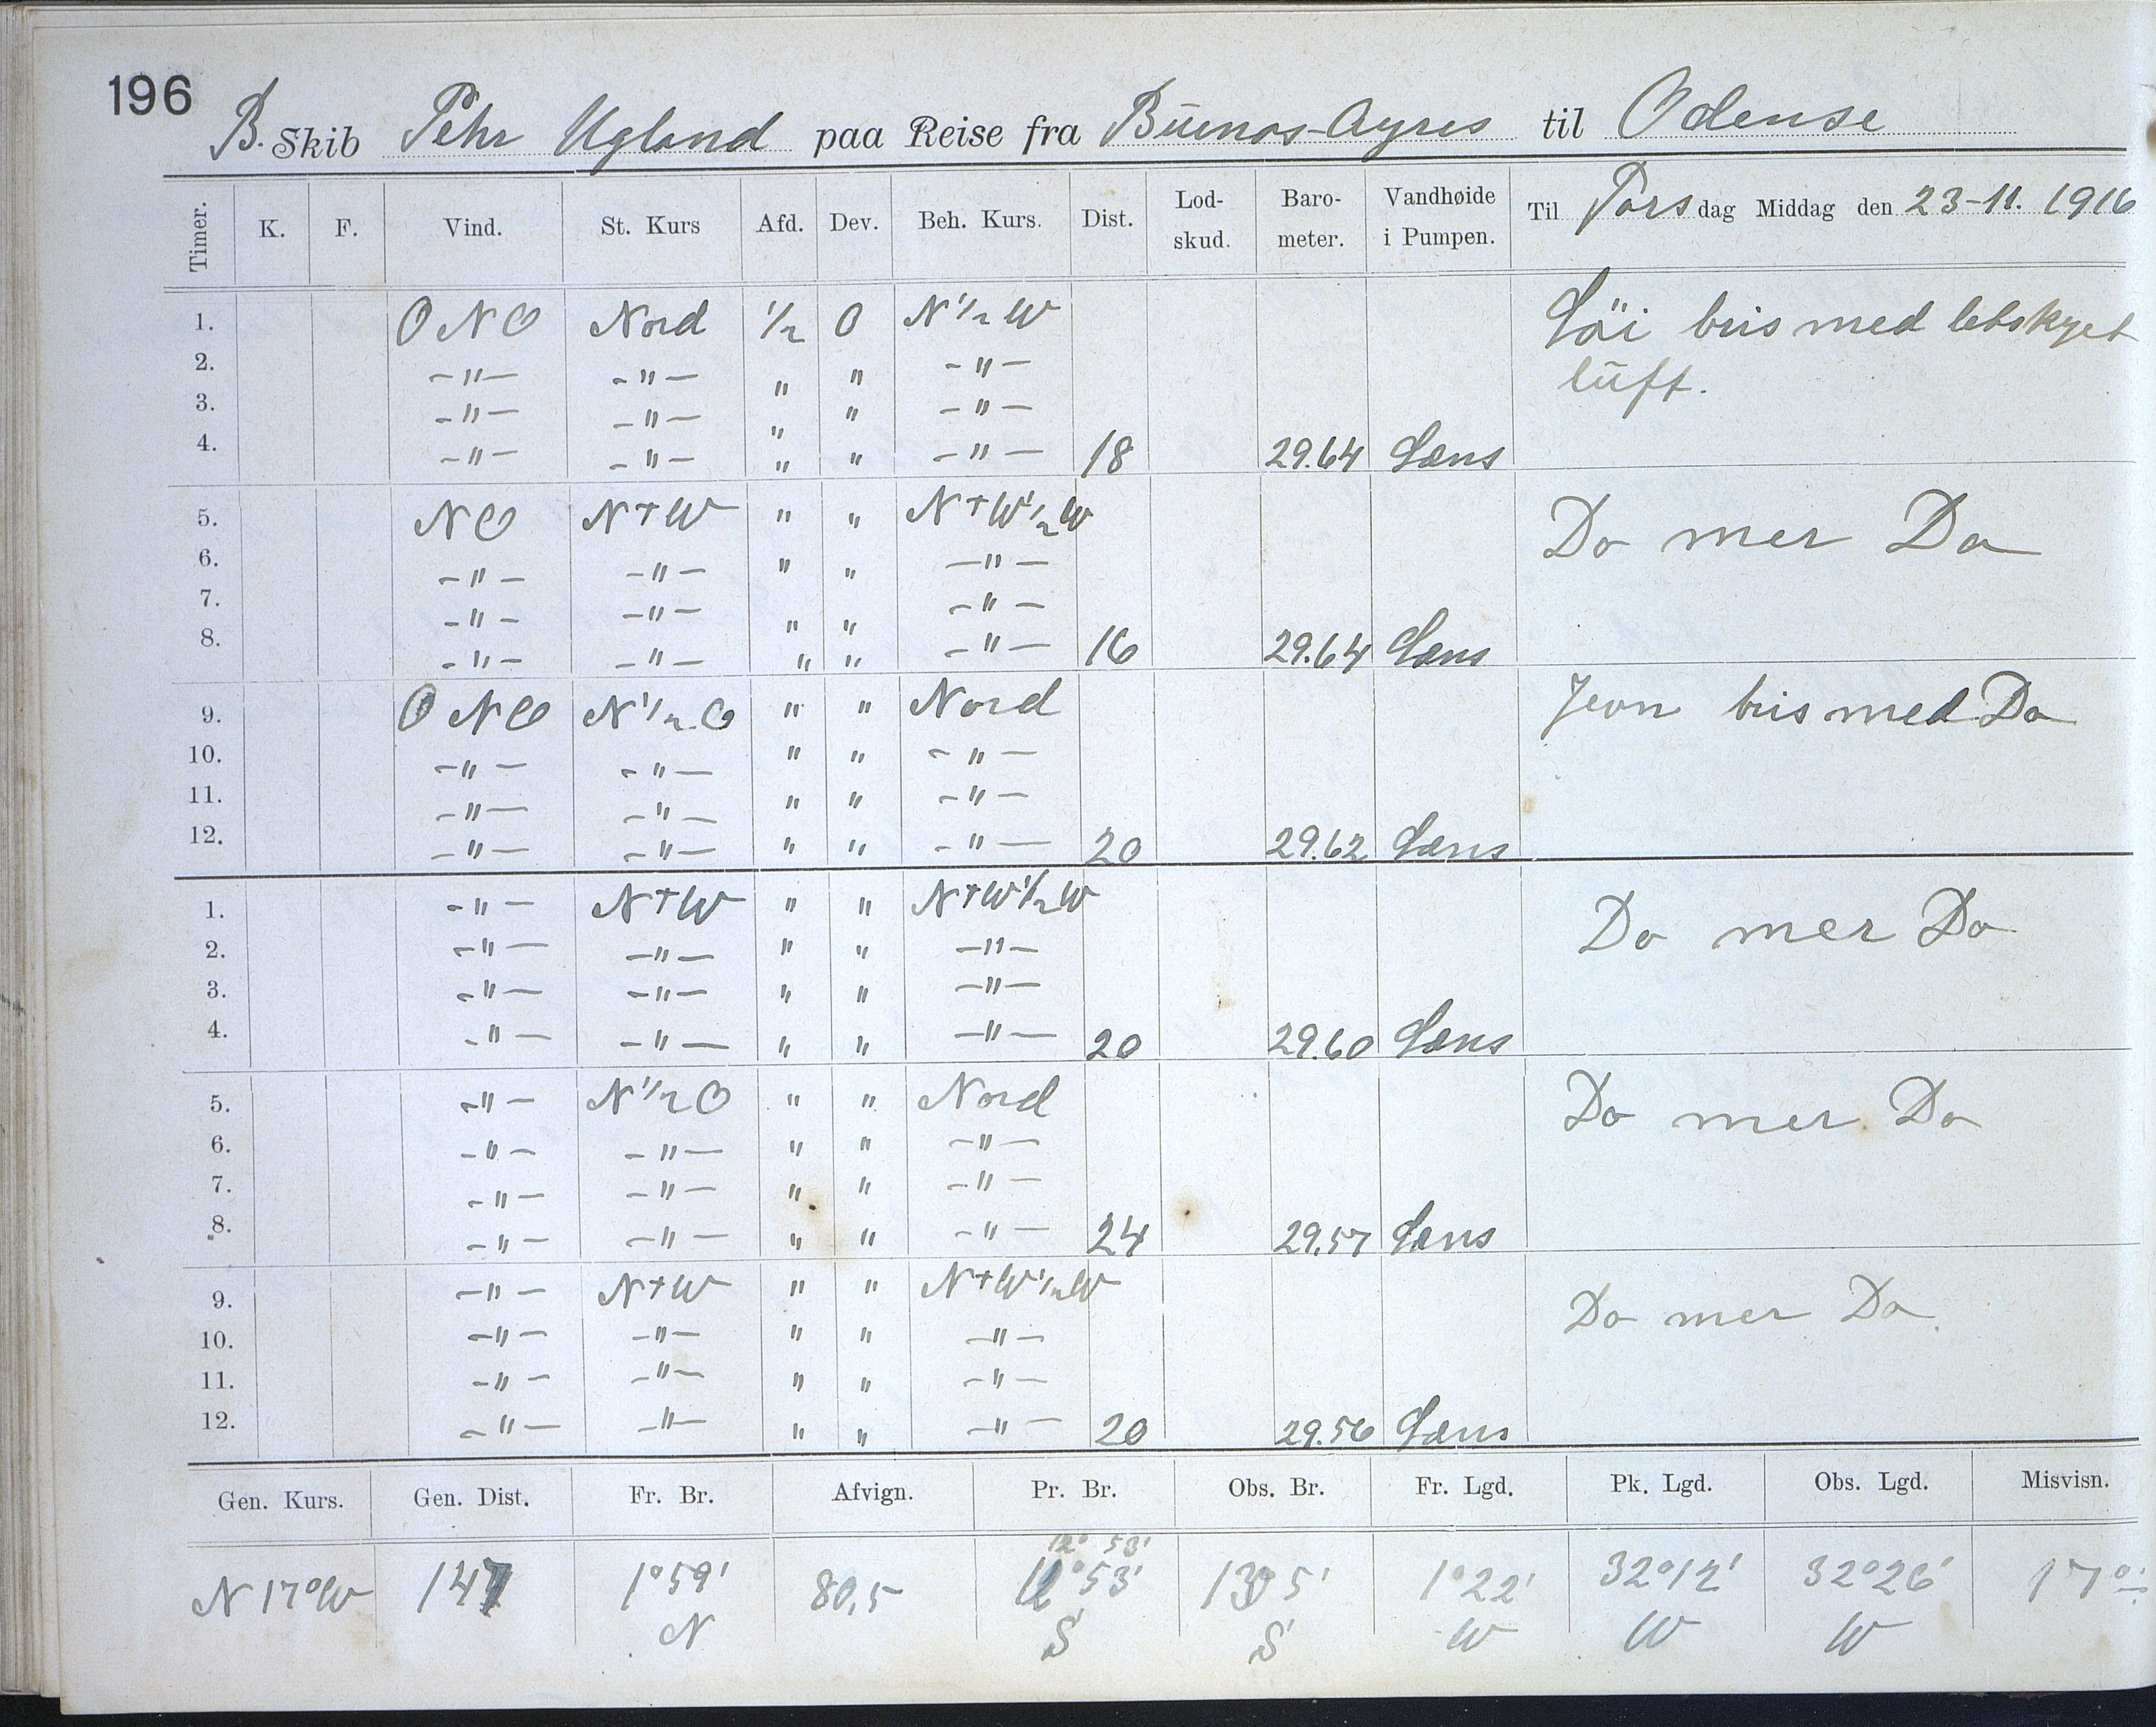 196
B. Skib Pehr Ugland paa Reise fra Buenos-Ayres til Odense
Timer. K. F. Vind. St. Kurs Afd. Dev. Beh. Kurs. Dist. Lod-skud. Baro-meter. Vandhøide i Pumpen. Til Torsdag Middag den 23-11. 1916
1. ONO Nord 1/2 0 N 1/2 W Löi bris med letskyet
2. -"- -"- " " -"- lüft.
3. -"- -"- " " -"-
4. -"- -"- " " -"- 18 29.64 Læns
5. NO N+W " " N+W 1/2 W Do mer Do
6. -"- -"- " " -"-
7. -"- -"- " " -"-
8. -"- -"- " " -"- 16 29.64 Læns
9. ONO N 1/2 O " " Nord Jevn bris med Do
10. -"- -"- " " -"-
11. -"- -"- " " -"-
12. -"- -"- " " -"- 20 29.62 Læns
1. -"- N+W " " N+W 1/2 W Do mer Do
2. -"- -"- " " -"-
3. -"- -"- " " -"-
4. -"- -"- " " -"- 20 29.60 Læns
5. -"- N 1/2 O " " Nord Do mer Do
6. -"- -"- " " -"-
7. -"- -"- " " -"-
8. -"- -"- " " -"- 24 29.57 Læns
9. -"- N+W " " N+W 1/2 W Do mer Do.
10. -"- -"- " " -"-
11. -"- -"- " " -"-
12. -"- -"- " " -"- 20 29.56 Læns
Gen. Kurs. Gen. Dist. Fr. Br. Afvign. Pr. Br. Obs. Br. Fr. Lgd. Pk. Lgd. Obs. Lgd. Misvisn.
12° 53'
N 17° W 147 1° 59' 80,5 12° 53' 13° 5' 1° 22' 32° 12' 32° 26' 17°
N S S W W W